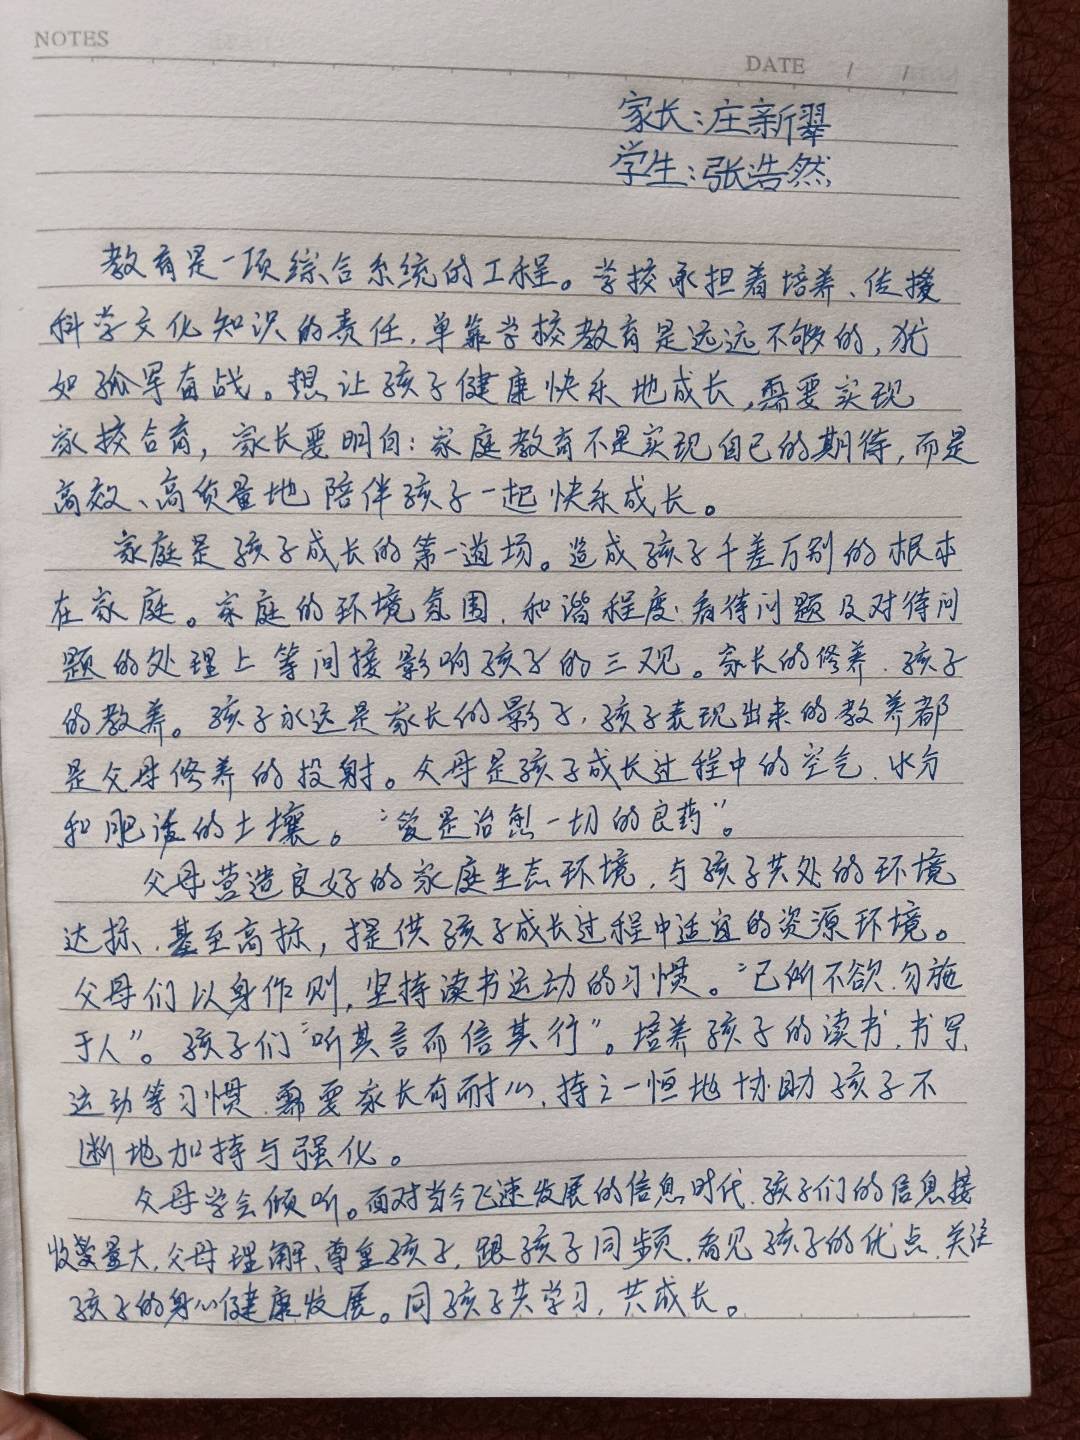 NOTES
DATE / /
家长:庄新翠
学生:张浩然
教育是一项综合系统的工程。学校承担着培养、传授
科学文化知识的责任,单靠学校教育是远远不够的,犹
如孤军奋战。想让孩子健康快乐地成长,需要实现
家校合育,家长要明白:家庭教育不是实现自己的期待,而是
高效、高质量地陪伴孩子一起快乐成长。
家庭是孩子成长的第一道场。造成孩子千差万别的根本
在家庭。家庭的环境氛围、和谐程度、看待问题及对待问
题的处理上等间接影响孩子的三观。家长的修养、孩子
的教养。孩子永远是家长的影子,孩子表现出来的教养都
是父母修养的投射。父母是孩子成长过程中的空气、水分
和肥沃的土壤。“爱是治愈一切的良药”。
父母营造良好的家庭生态环境,与孩子共处的环境
达标、甚至高标,提供孩子成长过程中适宜的资源环境。
父母们以身作则,坚持读书运动的习惯。“己所不欲、勿施
于人”。孩子们“听其言而信其行”。培养孩子的读书、书写
运动等习惯、需要家长有耐心,持之一恒地协助孩子不
断地加持与强化。
父母学会倾听。面对当今飞速发展的信息时代、孩子们的信息接
收量大,父母理解、尊重孩子,跟孩子同步频、看见孩子的优点、关注
孩子的身心健康发展。同孩子共学习,共成长。